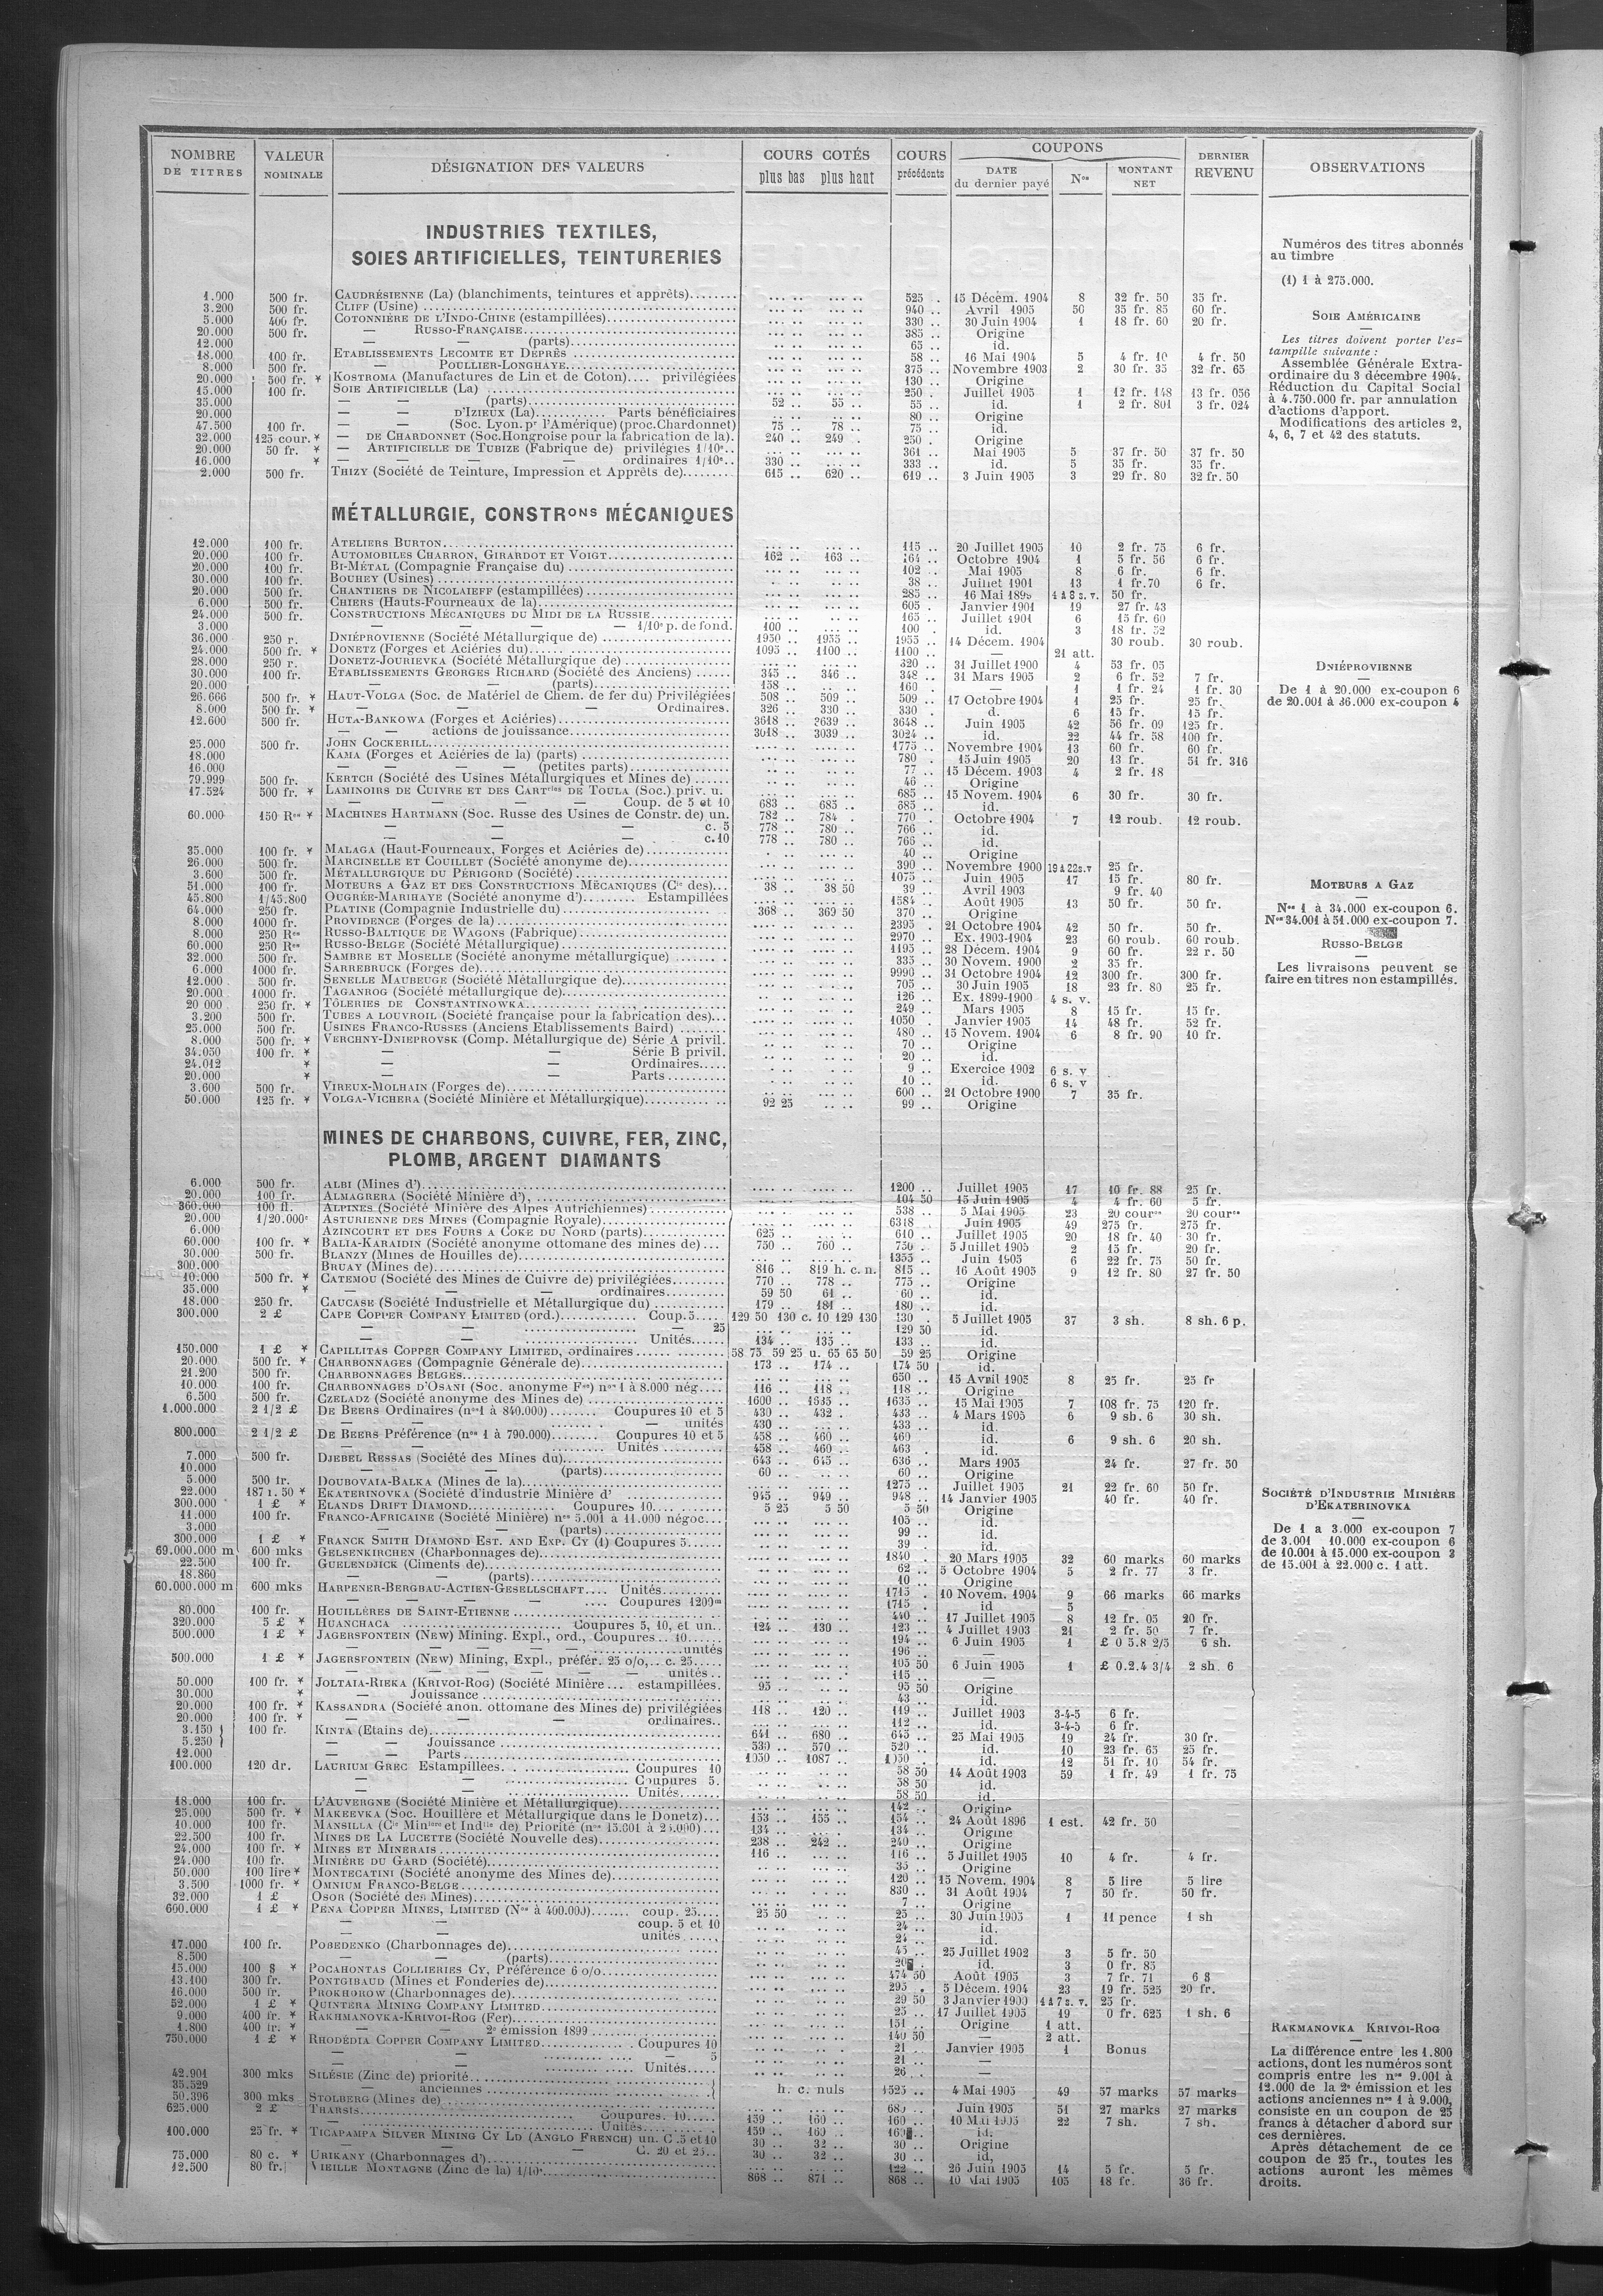 NOMBRE DE TITRES | VALEUR NOMINALE | DÉSIGNATION DES VALEURS | COURS COTÉS plus bas plus haut | COURS précédents | COUPONS DATE du dernier payé | Nos | MONTANT NET | DERNIER REVENU | OBSERVATIONS
INDUSTRIES TEXTILES,
SOIES ARTIFICIELLES, TEINTURERIES
1.000 500 fr. CAUDRÉSIENNE (La) (blanchiments, teintures et apprêts) 525 . 15 Décem. 1904 8 32 fr. 50 35 fr.
3.200 500 fr. CLIFF (Usine) 940 .. Avril 1905 50 35 fr. 85 60 fr.
5.000 400 fr. COTONNIÈRE DE L'INDO-CHINE (estampillées) 330 .. 30 Juin 1904 1 18 fr. 60 20 fr.
20.000 500 fr. — RUSSO-FRANÇAISE 385 .. Origine
12.000 — — (parts) 65 .. id.
18.000 100 fr. ETABLISSEMENTS LECOMTE ET DEPRÈS 58 .. 16 Mai 1904 5 4 fr. 10 4 fr. 50
8.000 500 fr. — POULLIER-LONGHAYE 375 .. Novembre 1903 2 30 fr. 35 32 fr. 65
20.000 500 fr. * KOSTROMA (Manufactures de Lin et de Coton).... privilégiées 130 .. Origine
15.000 100 fr. SOIE ARTIFICIELLE (La) 250 . Juillet 1905 1 12 fr. 148 13 fr. 056
35.000 — — (parts) 52 .. 55 .. 55 .. id. 1 2 fr. 801 3 fr. 024
20.000 — — D'IZIEUX (La) Parts bénéficiaires 80 .. Origine
47.500 100 fr. — — (Soc. Lyon. pr l'Amérique) (proc. Chardonnet) 75 .. 78 .. 75 .. id.
32.000 125 cour. * — DE CHARDONNET (Soc. Hongroise pour la fabrication de la). 240 .. 249 . 250 . Origine
20.000 50 fr. * — ARTIFICIELLE DE TUBIZE (Fabrique de) privilégies 1/10e.. 361 .. Mai 1905 5 37 fr. 50 37 fr. 50
16.000 * — — ordinaires 1/10e.. 330 .. 333 .. id. 5 35 fr. 35 fr.
2.000 500 fr. THIZY (Société de Teinture, Impression et Apprêts de) 615 .. 620 .. 619 .. 3 Juin 1905 3 29 fr. 80 32 fr. 50
MÉTALLURGIE, CONSTRons MÉCANIQUES
12.000 100 fr. ATELIERS BURTON 115 .. 20 Juillet 1905 10 2 fr. 75 6 fr.
20.000 100 fr. AUTOMOBILES CHARRON, GIRARDOT ET VOIGT 162 .. 163 .. 164 .. Octobre 1904 1 5 fr. 56 6 fr.
20.000 100 fr. BI-MÉTAL (Compagnie Française du) 102 .. Mai 1905 8 6 fr. 6 fr.
30.000 100 fr. BOUHEY (Usines) 38 .. Juillet 1901 13 1 fr.70 6 fr.
20.000 500 fr. CHANTIERS DE NICOLAIEFF (estampillées) 285 .. 16 Mai 4 à 8 s. v. 50 fr.
6.000 500 fr. CHIERS (Hauts-Fourneaux de la) 605 . Janvier 1901 19 27 fr. 43
24.000 500 fr. CONSTRUCTIONS MÉCANIQUES DU MIDI DE LA RUSSIE 165 .. Juillet 1901 6 15 fr. 60
3.000 — — — 1/10e p. de fond. 100 .. 100 . id. 3 18 fr. 52
36.000 250 r. DNIÉPROVIENNE (Société Métallurgique de) 1950 .. 1955 .. 1955 .. 14 Décem. 1904 30 roub. 30 roub.
24.000 500 fr. * DONETZ (Forges et Aciéries du) 1095 .. 1100 .. 1100 .. — 21 att.
28.000 250 r. DONETZ-JOURIEVKA (Société Métallurgique de) 320 .. 31 Juillet 1900 4 53 fr. 05
30.000 100 fr. ETABLISSEMENTS GEORGES RICHARD (Société des Anciens) 345 .. 346 .. 348 .. 31 Mars 1905 2 6 fr. 52 7 fr.
20.000 — — (parts) 158 .. 160 . — 1 1 fr. 24 1 fr. 30
26.666 500 fr. * HAUT-VOLGA (Soc. de Matériel de Chem. de fer du) Privilégiées 508 509 .. 509 .. 17 Octobre 1904 1 25 fr. 25 fr.
8.000 500 fr. * — — Ordinaires. 326 .. 330 .. 330 . d. 6 15 fr. 15 fr.
12.600 500 fr. HUTA-BANKOWA (Forges et Aciéries) 3618 .. 3639 .. 3648 .. Juin 1905 42 56 fr. 09 125 fr.
— — actions de jouissance 3018 .. 3039 .. 3024 .. id. 22 44 fr. 58 100 fr.
25.000 500 fr. JOHN COCKERILL 1775 .. Novembre 1904 13 60 fr. 60 fr.
18.000 KAMA (Forges et Aciéries de la) (parts) 780 . 15 Juin 1905 20 13 fr. 51 fr. 316
16.000 — — (petites parts) 77 .. 15 Décem. 1903 4 2 fr. 18
79.999 500 fr. KERTCH (Société des Usines Métallurgiques et Mines de) 46 .. Origine
17.524 500 fr. * LAMINOIRS DE CUIVRE ET DES CARTcies DE TOULA (Soc.) priv. u. 685 .. 15 Novem. 1904 6 30 fr. 30 fr.
— — — — Coup. de 5 et 10 683 .. 685 .. 685 .. id.
60.000 150 Res * MACHINES HARTMANN (Soc. Russe des Usines de Constr. de) un. 782 .. 784 . 770 . Octobre 1904 7 12 roub. 12 roub.
— — — c. 5 778 .. 780 .. 766 .. id.
— — — c. 10 778 .. 780 .. 766 .. id.
35.000 100 fr. * MALAGA (Haut-Fourneaux, Forges et Aciéries de) 40 .. Origine
26.000 500 fr. MARCINELLE ET COUILLET (Société anonyme de) 390 .. Novembre 1900 19 à 22 s.v 25 fr.
3.600 500 fr. MÉTALLURGIQUE DU PÉRIGORD (Société) 1075 .. Juin 1905 17 15 fr. 80 fr.
51.000 100 fr. MOTEURS A GAZ ET DES CONSTRUCTIONS MÉCANIQUES (Cie des) 38 .. 38 50 39 .. Avril 1903 9 fr. 40
45.800 1/45.800 OUGRÉE-MARIHAYE (Société anonyme d') Estampillées 1584 .. Août 1905 13 50 fr. 50 fr.
64.000 250 fr. PLATINE (Compagnie Industrielle du) 368 .. 369 50 370 .. Origine
8.000 1000 fr. PROVIDENCE (Forges de la) 2395 . 21 Octobre 1904 42 50 fr. 50 fr.
8.000 250 Res RUSSO-BALTIQUE DE WAGONS (Fabrique) 2970 .. Ex. 1903-1904 23 60 roub. 60 roub.
60.000 250 Res RUSSO-BELGE (Société Métallurgique) 1195 .. 28 Décem. 1904 9 60 fr. 22 r. 50
32.000 500 fr. SAMBRE ET MOSELLE (Société anonyme métallurgique) 335 .. 30 Novem. 1900 2 35 fr.
6.000 1000 fr. SARREBRUCK (Forges de) 9990 .. 31 Octobre 1904 12 300 fr. 300 fr.
12.000 500 fr. SENELLE MAUBEUGE (Société Métallurgique de) 705 .. 30 Juin 1905 18 23 fr. 80 25 fr.
20.000 1000 fr. TAGANROG (Société métallurgique de) 126 .. Ex. 1899-1900 4 s. v.
20 000 250 fr. * TÔLERIES DE CONSTANTINOWKA 249 .. Mars 1905 8 15 fr. 15 fr.
3.200 500 fr. TUBES A LOUVROIL (Société française pour la fabrication des) 1050 . Janvier 1905 14 48 fr. 52 fr.
25.000 500 fr. USINES FRANCO-RUSSES (Anciens Etablissements Baird) 480 .. 15 Novem. 1904 6 8 fr. 90 10 fr.
8.000 500 fr. * VERCHNY-DNIEPROVSK (Comp. Métallurgique de) Série A privil. 70 .. Origine
34.050 100 fr. * — — Série B privil. 20 .. id.
24.012 * — — Ordinaires 9 .. Exercice 1902 6 s. v
20.000 * — — Parts 10 .. id. 6 s. v
3.600 500 fr. VIREUX-MOLHAIN (Forges de) 600 .. 21 Octobre 1900 7 35 fr.
50.000 125 fr. * VOLGA-VICHERA (Société Minière et Métallurgique) 92 25 99 .. Origine
MINES DE CHARBONS, CUIVRE, FER, ZINC,
PLOMB, ARGENT DIAMANTS
6.000 500 fr. ALBI (Mines d') 1200 .. Juillet 1905 17 10 fr. 88 25 fr.
20.000 100 fr. ALMAGRERA (Société Minière d') 104 50 15 Juin 1905 4 4 fr. 60 5 fr.
360.000 100 fl. ALPINES (Société Minière des Alpes Autrichiennes) 538 .. 5 Mai 1905 23 20 cour. 20 cour.
20.000 1/20.000e ASTURIENNE DES MINES (Compagnie Royale) 6318 . Juin 1905 49 275 fr. 275 fr.
6.000 AZINCOURT ET DES FOURS A COKE DU NORD (parts) 625 .. 610 .. Juillet 1905 20 18 fr. 40 30 fr.
60.000 100 fr. * BALIA-KARAIDIN (Société anonyme ottomane des mines de) 750 .. 760 .. 756 . 5 Juillet 1905 2 15 fr. 20 fr.
30.000 500 fr. BLANZY (Mines de Houilles de) 1355 .. Juin 1905 6 22 fr. 75 50 fr.
300.000 BRUAY (Mines de) 816 .. 819 h. c. n. 815 .. 16 Août 1905 9 12 fr. 80 27 fr. 50
10.000 500 fr. * CATEMOU (Société des Mines de Cuivre de) privilégiées 770 .. 778 .. 775 .. Origine
35.000 * — — ordinaires 59 50 61 .. 60 .. id.
18.000 250 fr. CAUCASE (Société Industrielle et Métallurgique du) 179 .. 181 .. 180 .. id.
300.000 2 £ CAPE COPPER COMPANY LIMITED (ord.) Coup. 5 129 50 130 c. 10 129 130 130 . 5 Juillet 1905 37 3 sh. 8 sh. 6 p.
— — — 25 129 50 id.
— — Unités 134 .. 135 .. 133 .. id.
150.000 1 £ * CAPILLITAS COPPER COMPANY LIMITED, ordinaires 58 75 59 25 u. 65 65 50 59 25 Origine
20.000 500 fr. * CHARBONNAGES (Compagnie Générale de) 173 .. 174 .. 174 50 id.
21.200 500 fr. CHARBONNAGES BELGES 650 .. 15 Avril 1905 8 25 fr. 25 fr
10.000 100 fr. CHARBONNAGES D'OSANI (Soc. anonyme Fse) nos 1 à 8.000 nég. 116 .. 118 .. 118 .. Origine
6.500 500 fr. CZELADZ (Société anonyme des Mines de) 1600 .. 1635 .. 1635 .. 15 Mai 1905 7 108 fr. 75 120 fr.
1.000.000 2 1/2 £ DE BEERS Ordinaires (nos 1 à 840.000) Coupures 10 et 5 430 .. 432 . 433 .. 4 Mars 1905 6 9 sh. 6 30 sh.
— — — unités 430 .. 433 .. id.
800.000 2 1/2 £ DE BEERS Préférence (nos 1 à 790.000) Coupures 10 et 5 458 .. 460 .. 460 .. id. 6 9 sh. 6 20 sh.
— — Unités 458 .. 460 .. 463 . id.
7.000 500 fr. DJEBEL RESSAS (Société des Mines du) 643 .. 645 .. 636 .. Mars 1905 24 fr. 27 fr. 50
10.000 — — (parts) 60 .. 60 .. Origine
5.000 500 fr. DOUBOVAIA-BALKA (Mines de la) 1275 .. Juillet 1905 21 22 fr. 60 50 fr.
22.000 187 r. 50 * EKATERINOVKA (Société d'industrie Minière d' 945 .. 949 .. 948 .. 14 Janvier 1905 40 fr. 40 fr.
300.000 1 £ * ELANDS DRIFT DIAMOND Coupures 10 5 25 5 50 5 50 Origine
11.000 100 fr. FRANCO-AFRICAINE (Société Minière) nos 5.001 à 11.000 négoc. 105 .. id.
3.000 — — (parts) 99 .. id.
300.000 1 £ * FRANCK SMITH DIAMOND EST. AND EXP. CY (1) Coupures 5 39 . id.
69.000.000 m 600 mks GELSENKIRCHEN (Charbonnages de) 1840 . 20 Mars 1905 32 60 marks 60 marks
22.500 100 fr. GUELENDJICK (Ciments de) 62 .. 5 Octobre 1904 5 2 fr. 77 3 fr.
18.860 — — (parts) 10 .. Origine
60.000.000 m 600 mks HARPENER-BERGBAU-ACTIEN-GESELLSCHAFT Unités 1715 .. 10 Novem. 1904 9 66 marks 66 marks
— — — — Coupures 1200m 1715 .. id 5
80.000 100 fr. HOUILLÈRES DE SAINT-ETIENNE 440 .. 17 Juillet 1905 8 12 fr. 05 20 fr.
320.000 5 £ * HUANCHACA Coupures 5, 10, et un. 124 .. 130 .. 123 .. 4 Juillet 1903 21 2 fr. 50 7 fr.
500.000 1 £ * JAGERSFONTEIN (NEW) Mining. Expl., ord., Coupures.. 10 194 .. 6 Juin 1905 1 £ 0 5.8 2/5 6 sh.
— — — unités 196 .. —
500.000 1 £ * JAGERSFONTEIN (NEW) Mining, Expl., préfér. 25 o/o, c. 25 105 50 6 Juin 1905 1 £ 0.2.4 3/4 2 sh. 6
— — — — unités 115 .. —
50.000 100 fr. * JOLTAIA-RIEKA (KRIVOI-ROG) (Société Minière... estampillées. 95 .. 95 50 Origine
30.000 * — Jouissance 43 .. id.
20.000 100 fr. * KASSANDRA (Société anon. ottomane des Mines de) privilégiées 118 .. 120 .. 119 .. Juillet 1903 3-4-5 6 fr.
20.000 100 fr. * — — ordinaires 112 .. id. 3-4-5 6 fr.
3.150 } 100 fr. KINTA (Etains de) 641 .. 680 .. 645 .. 25 Mai 1905 19 24 fr. 30 fr.
5.250 } — — Jouissance 530 .. 570 .. 520 .. id. 10 23 fr. 65 25 fr.
12.000 — — Parts 1050 .. 1087 .. 1050 .. id. 12 51 fr. 10 54 fr.
100.000 120 dr. LAURIUM GREC Estampillees Coupures 10 58 50 14 Août 1903 59 1 fr. 49 1 fr. 75
— — Coupures 5. 58 50 id.
— — Unités 58 50 id.
18.000 100 fr. L'AUVERGNE (Société Minière et Métallurgique) 142 .. Origine
25.000 500 fr. * MAKEEVKA (Soc. Houillère et Métallurgique dans le Donetz) 153 .. 155 .. 154 .. 24 Août 1896 1 est. 42 fr. 50
10.000 100 fr. MANSILLA (Cie Minière et Indlle de) Priorité (nos 15.001 à 25.000) 134 .. 134 .. Origine
22.500 100 fr. MINES DE LA LUCETTE (Société Nouvelle des) 238 .. 242 .. 240 .. Origine
24.000 100 fr. * MINES ET MINERAIS 116 .. 116 .. 5 Juillet 1905 10 4 fr. 4 fr.
24.000 100 fr. MINIÈRE DU GARD (Société) 35 .. Origine
50.000 100 lire * MONTECATINI (Société anonyme des Mines de) 120 .. 15 Novem. 1904 8 5 lire 5 lire
3.500 1000 fr. * OMNIUM FRANCO-BELGE 830 .. 31 Août 1904 7 50 fr. 50 fr.
32.000 1 £ OSOR (Société des Mines) 7 .. Origine
600.000 1 £ * PENA COPPER MINES, LIMITED (Nos à 400.000) coup. 25 25 50 25 .. 30 Juin 1905 1 11 pence 1 sh
— — coup. 5 et 10 24 .. id.
unités 24 .. id.
17.000 100 fr. POBEDENKO (Charbonnages de) 45 .. 25 Juillet 1902 3 5 fr. 50
8.500 — — (parts) id. 3 0 fr. 85
15.000 100 $ * POCAHONTAS COLLIERIES CY, Préférence 6 o/o 474 50 Août 1905 3 7 fr. 71 6 $
13.100 300 fr. PONTGIBAUD (Mines et Fonderies de) 295 . 5 Décem. 1904 23 19 fr. 525 20 fr.
16.000 500 fr. PROKHOROW (Charbonnages de) 29 50 3 Janvier 1900 4 à 7 s. v. 25 fr.
52.000 1 £ * QUINTERA MINING COMPANY LIMITED 25 .. 17 Juillet 1905 19 0 fr. 625 1 sh. 6
9.000 400 fr. * RAKHMANOVKA-KRIVOI-ROG (Fer) 151 .. Origine 1 att.
1.800 400 fr. * — — 2e émission 1899 140 50 — 2 att.
750.000 1 £ * RHODÉDIA COPPER COMPANY LIMITED Coupures 10 21 .. Janvier 1905 1 Bonus
— — — 5 21 .. —
— — Unités 26 .. —
42.901 300 mks SILÉSIE (Zinc de) priorité
35.529 — anciennes h. c. nuls 1525 .. 4 Mai 1905 49 57 marks 57 marks
50.396 300 mks STOLBERG (Mines de) Juin 1905 51 27 marks 27 marks
625.000 2 £ THARSIS Coupures. 10 159 .. 160 .. 160 .. 10 Mai 1905 22 7 sh. 7 sh.
Unités 159 .. 160 .. id.
100.000 25 fr. * TICAPAMPA SILVER MINING CY LD (ANGLO FRENCH) un. C. 5 et 10 30 .. 32 .. 30 .. Origine
— — C. 20 et 25 30 .. 32 .. 30 .. id,
75.000 80 c. * URIKANY (Charbonnages d') 122 .. 26 Juin 1905 14 5 fr. 5 fr.
12.500 80 fr. VIEILLE MONTAGNE (Zinc de la) 1/10e 868 .. 871 .. 868 .. 10 Mai 1905 105 18 fr. 36 fr.
Numéros des titres abonnés
au timbre
(1) 1 à 275.000.
SOIE AMÉRICAINE
Les titres doivent porter l'es-
tampille suivante :
Assemblée Générale Extra-
ordinaire du 3 décembre 1904.
Réduction du Capital Social
à 4.750.000 fr. par annulation
d'actions d'apport.
Modifications des articles 2,
4, 6, 7 et 42 des statuts.
DNIÉPROVIENNE
De 1 à 20.000 ex-coupon 6
de 20.001 à 36.000 ex-coupon 4
MOTEURS A GAZ
Nos 1 à 34.000 ex-coupon 6.
Nos 34.001 à 51.000 ex-coupon 7.
RUSSO-BELGE
Les livraisons peuvent se
faire en titres non estampillés.
SOCIÉTÉ D'INDUSTRIE MINIÈRE
D'EKATERINOVKA
De 1 a 3.000 ex-coupon 7
de 3.001 10.000 ex-coupon 6
de 10.001 à 15.000 ex-coupon 3
de 15.001 à 22.000 c. 1 att.
RAKMANOVKA KRIVOI-ROG
La différence entre les 1.800
actions, dont les numéros sont
compris entre les nos 9.001 à
12.000 de la 2e émission et les
actions anciennes nos 1 à 9.000,
consiste en un coupon de 25
francs à détacher d'abord sur
ces dernières.
Après détachement de ce
coupon de 25 fr., toutes les
actions auront les mêmes
droits.